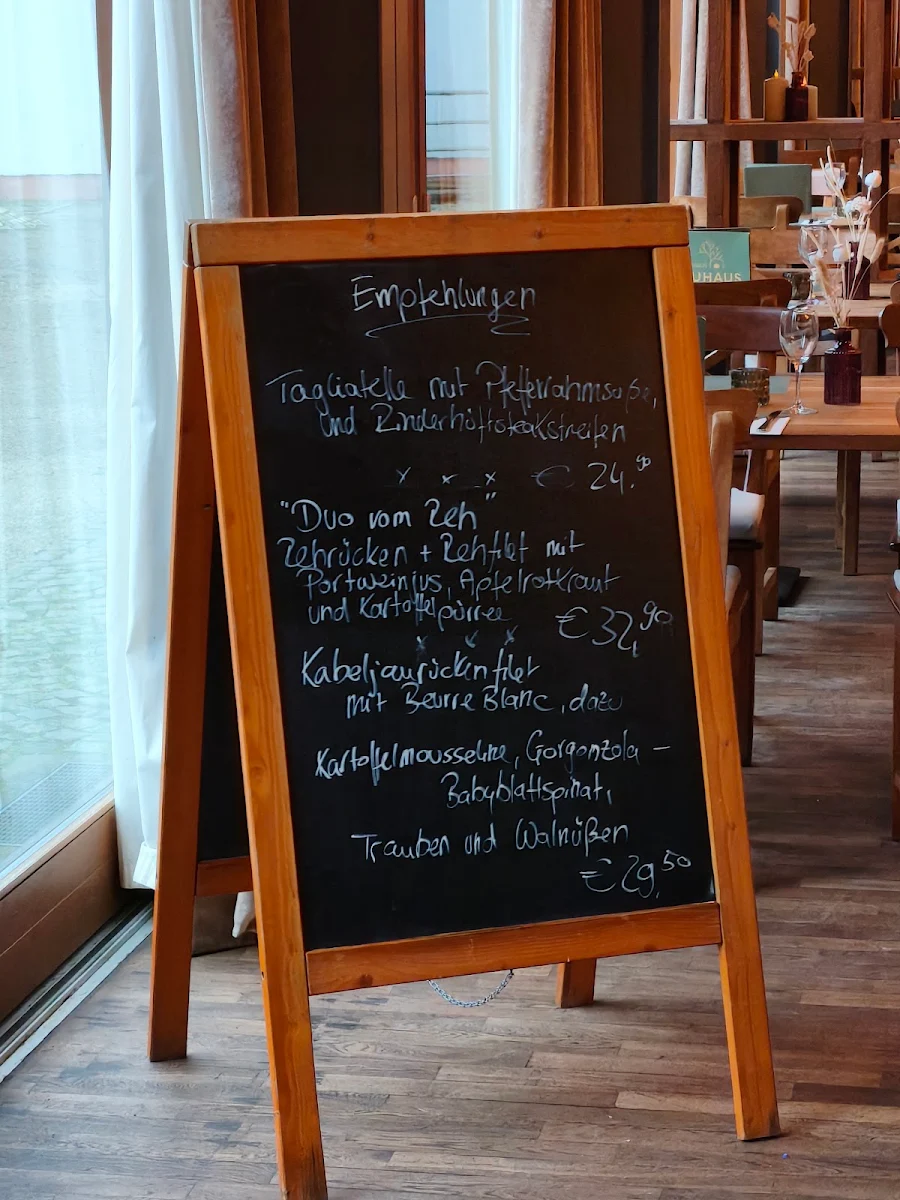 Empfehlungen
Tagliatelle mit Pfefferrahmsoße,
und Rinderhüftsteakstreifen
€ 24.90
"Duo vom Reh"
Rehrücken + Rehfilet mit
Portweinjus, Apfelrotkraut
und Kartoffelpürree
€ 32,90
Kabeljaurückenfilet
mit Beurre Blanc, dazu
Kartoffelmousseline, Gorgonzola -
Babyblattspinat,
Trauben und Walnüßen
€ 29,50
UHAUS